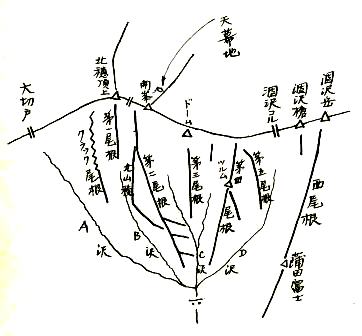 天幕地
北穂頂上
南峯
大切戸
ドーム
涸沢コル
涸沢槍
涸沢岳
クラック尾根
第一尾根
北山稜
第二尾根
第三尾根
ツルム
第四尾根
第五尾根
西尾根
蒲田富士
A沢
B沢
C沢
D沢